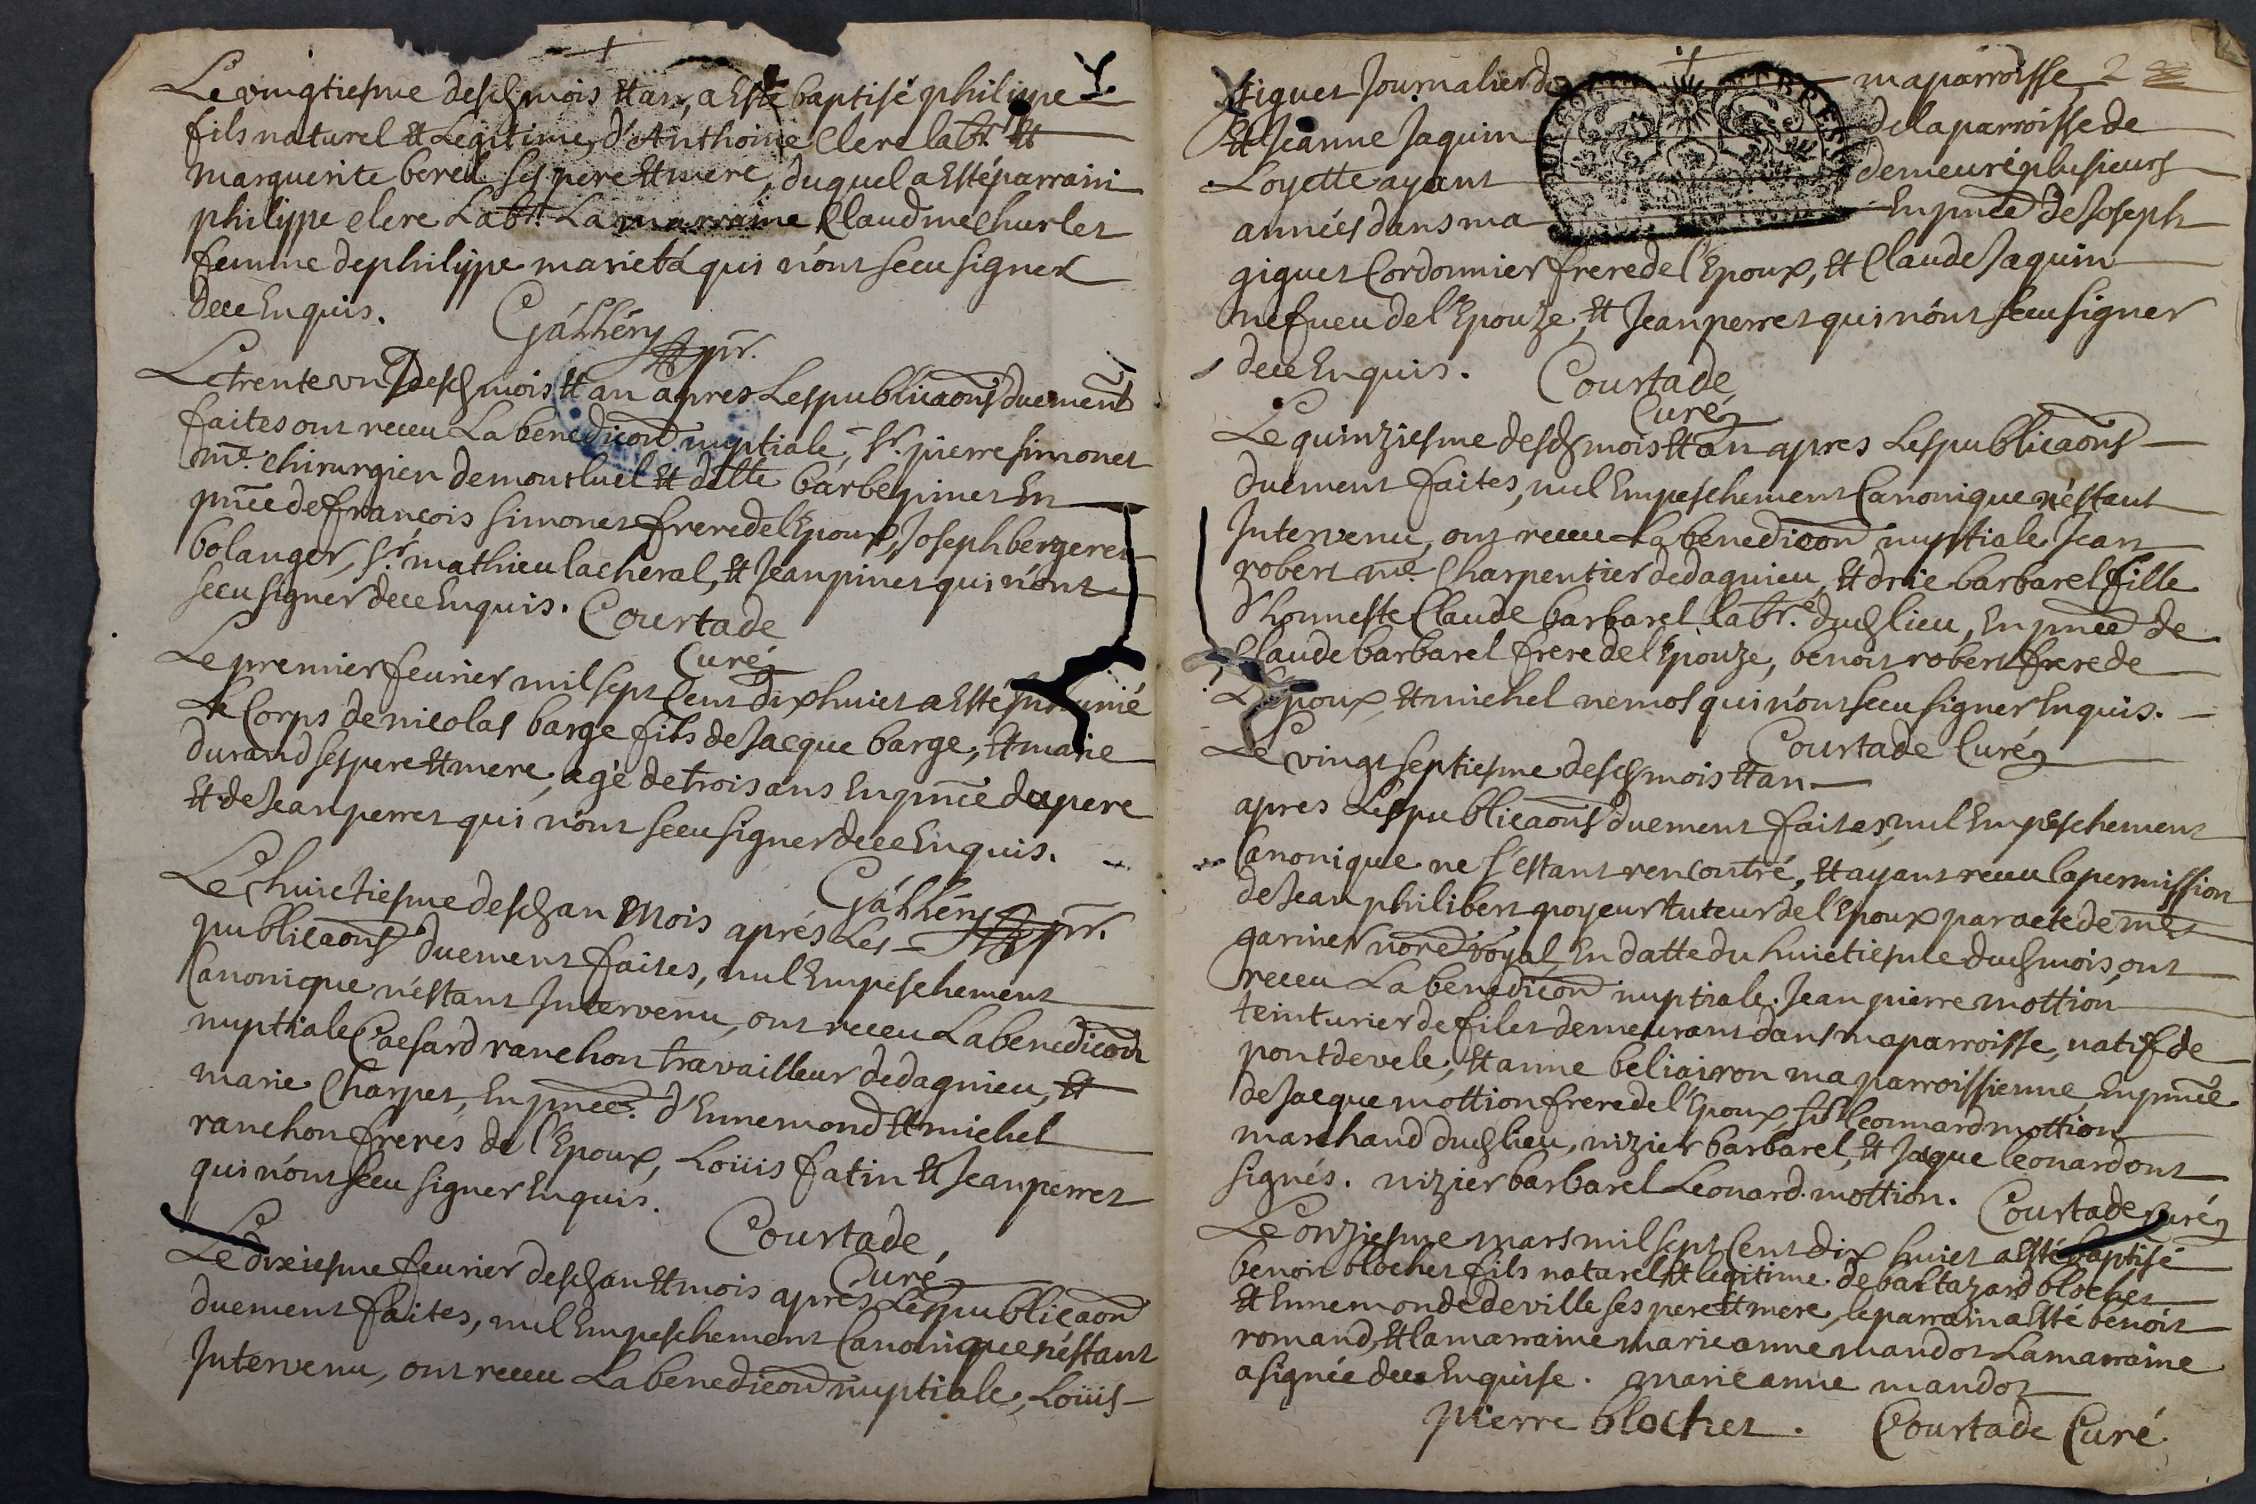 Le vingtiesme desd mois et an, a Esté baptisé philippe
fils naturel et Legitime, d'Anthoine Clere labr. et
marguerite berel ses pere et mere, duquel a Esté parrain
philippe clere Labr. La marraine Claudine Churlet
femme de philippe marieta qui n'ont sceu signer
dece Enquis.
Galléry pr.
Le trente un desd mois et an apres Les publicaons duement
faites ont receu La benedicon nuptiale, Sr. pierre simonet
me. chirurgien de montluel et delle barbe pinet En
pnce de francois simonet frere de l'Epoux, Joseph bergeret
bolanger, Sr. mathieu lacheral, et Jean pinet qui n'ont
sceu signer dece Enquis. Courtade
Curé
Le premier feurier mil sept Cent dix huict a Esté Inhumé
Le Corps de nicolas barge fils de Jacque barge, et marie
durand ses pere et mere, agé de trois ans En pnce du pere
et de Jean perret qui n'ont sceu signer dece Enquis.
Galléry pr.
Le huictiesme desd an mois aprés Les
publicaons duement faites, nul Empeschement
Canonique n'estant Intervenu, ont receu La benedicon
nuptiale Caesard ranchon travailleur de dagnieu, et
marie Charpet, En pnce. d'Ennemond et michel
ranchon freres de l'Epoux, Loüis fatin et Jean perret
qui n'ont sceu signer Enquis.
Courtade,
Curé
Le dixiesme feurier desd an et mois apres Les publicaon
duement faites, nul Empeschement Canonique n'estant
Intervenu, ont receu La benedicon nuptiale, Loüis
giguet Journalier de ma parroisse 2
et Jeanne Jaquin de la parroisse de
Loyette ayant demeuré plusieurs
années dans ma En pnce de Joseph
giguet Cordonnier frere de l'Epoux, et Claude Jaquin
nefueu de l'Epouze, et Jean perret qui n'ont sceu signer
dece Enquis. Courtade
Curé
Le quinziesme desd mois et an apres Les publicaons
duement faites, nul Empeschement Canonique n'estant
Intervenu, ont receu La benedicon nuptiale Jean
robert me. Charpentier de dagnieu, et drie barbarel fille
d'honneste Claude barbarel labr. dud lieu, En pnce de
Claude barbarel frere de l'Epouze, benoit robert frere de
L'Epoux, et michel nemos qui n'ont sceu signer Enquis.
Courtade Curé
Le vingt septiesme desd mois et an
apres Les publicaons duement faites, nul Empeschement
Canonique ne s'estant rencontré, et ayant receu la permission
de Jean philibert poyeur tuteur de l'Epoux par acte de me
garinet nore royal En datte du huictiesme dud mois, ont
receu La benedicon nuptiale. Jean pierre mottion
teinturier de filet demeurant dans ma parroisse, natif de
pont de vele, et anne beliairon ma parroissienne, En pnce
de Jacque mottion frere de l'Epoux, Sr. leonnard mottion
marchand dud lieu, nizier barbarel, et Jacque leonard ont
signés. nizier barbarel Leonard mottion. Courtade curé
Le onziesme mars mil sept Cent dix huict a Esté baptisé
benoit blochet fils naturel et legitime de baltazard blochet
et Ennemonde deville ses pere et mere, le parrain a Esté benoit
romand, et la marraine marie anne mandot La marraine
a signée dece Enquise. marie anne mandot
pierre blochet. Courtade Curé